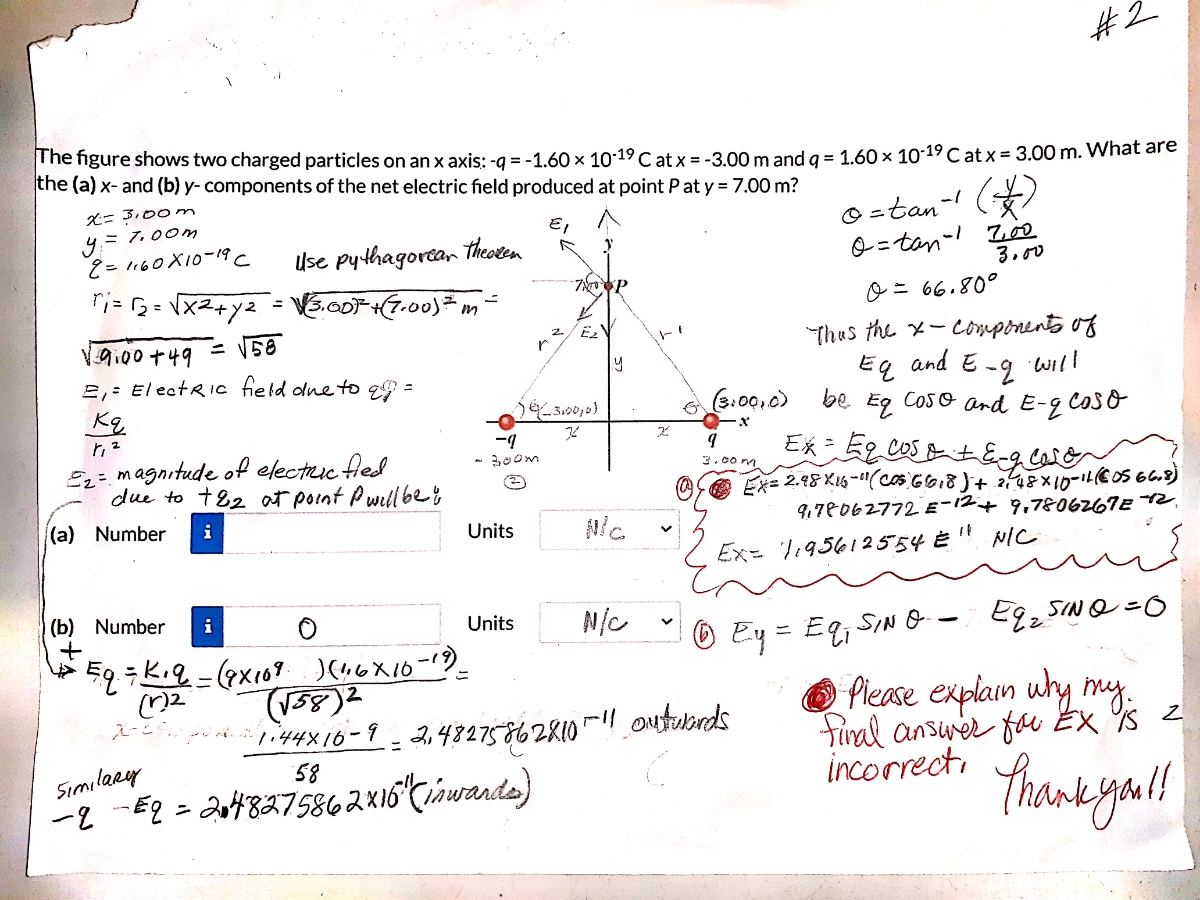 #2
The figure shows two charged particles on an x axis: -q = -1.60 × 10⁻¹⁹ C at x = -3.00 m and q = 1.60 × 10⁻¹⁹ C at x = 3.00 m. What are
the (a) x- and (b) y- components of the net electric field produced at point P at y = 7.00 m?
x = 3.00 m
y = 7.00m
q = 1.60 X10-19 C
Use pythagorean Theorem
r₁ = r₂ = √x2+y2 = √(3.00)²+(7.00)² m =
√9.00 + 49 = √58
E₁ = Electric field due to q =
Kq
r₁²
E₂ = magnitude of electric fied
due to +q2 at point P will be:
E₁
y
7.00 P
E₂
r 2
r 1
y
θ (-3.00,0)
θ (3.00,0)
x
x x
-q q
- 3.00m 3.00m
2
θ = tan-1 (y/x)
θ = tan-1 7.00/3.00
θ = 66.80°
Thus the x - components of
Eq and E-q will
be Eq cosθ and E-q cosθ
Ex = Eq cosθ + E-q cosθ
(a) Ex = 2.48 X10-11 (cos 66.8) + 2.48 X10-11 (cos 66.8)
9.78062772 E-12 + 9.7806267E-12
Ex = 1.95612554 E-11 N/C
(a) Number i Units N/C
(b) Number i 0 Units N/C
(b) Ey = Eq₁ SIN θ - Eq₂ SIN θ = 0
+
Eq = K.q/(r)2 = (9X10⁹)(1.6X10-19)/(√58)2 =
1.44X10-9/58 = 2.48275862X10-11 outwards
Similary
-q -Eq = 2.48275862 x10-11 (inwards)
Please explain why my
final answer for EX is
incorrect.
Thank you!!